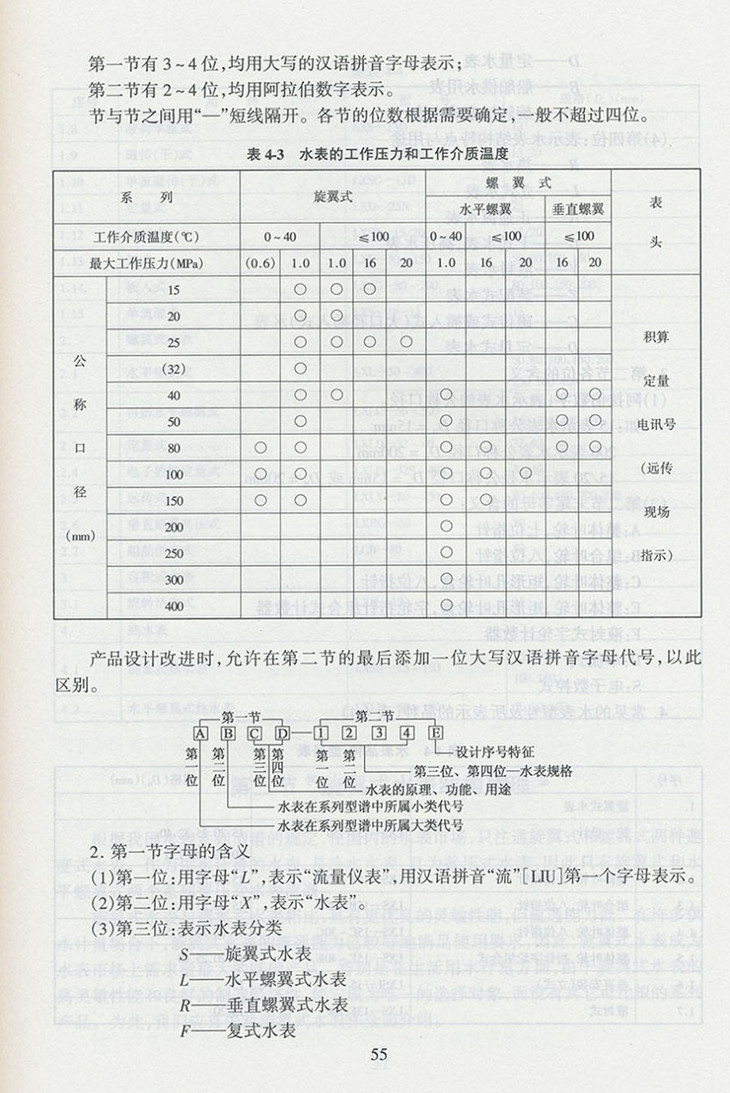 第一节有3~4位,均用大写的汉语拼音字母表示;
第二节有2~4位,均用阿拉伯数字表示。
节与节之间用“—”短线隔开。各节的位数根据需要确定,一般不超过四位。
表 4-3 水表的工作压力和工作介质温度
系 列 旋翼式 螺 翼 式 表头
水平螺翼 垂直螺翼
工作介质温度(℃) 0~40 ≤100 0~40 ≤100 ≤100
最大工作压力(MPa) (0.6) 1.0 1.0 16 20 1.0 16 20 16 20
公称口径(mm)
15 ○ ○ ○
20 ○ ○ ○
25 ○ ○ ○ ○
(32) ○
40 ○ ○ ○ ○ ○
50 ○ ○ ○ ○
80 ○ ○ ○ ○ ○ ○
100 ○ ○ ○ ○ ○
150 ○ ○ ○ ○
200 ○
250 ○
300 ○
400 ○
积算
定量
电讯号
(远传
现场
指示)
产品设计改进时,允许在第二节的最后添加一位大写汉语拼音字母代号,以此
区别。
第一节 第二节
A B C D — 1 2 3 4 E
第一位 第二位 第三位 第四位 第一位 第二位
设计序号特征
第三位、第四位—水表规格
水表的原理、功能、用途
水表在系列型谱中所属小类代号
水表在系列型谱中所属大类代号
2. 第一节字母的含义
(1)第一位:用字母“L”,表示“流量仪表”,用汉语拼音“流”[LIU]第一个字母表示。
(2)第二位:用字母“X”,表示“水表”。
(3)第三位:表示水表分类
S——旋翼式水表
L——水平螺翼式水表
R——垂直螺翼式水表
F——复式水表
55